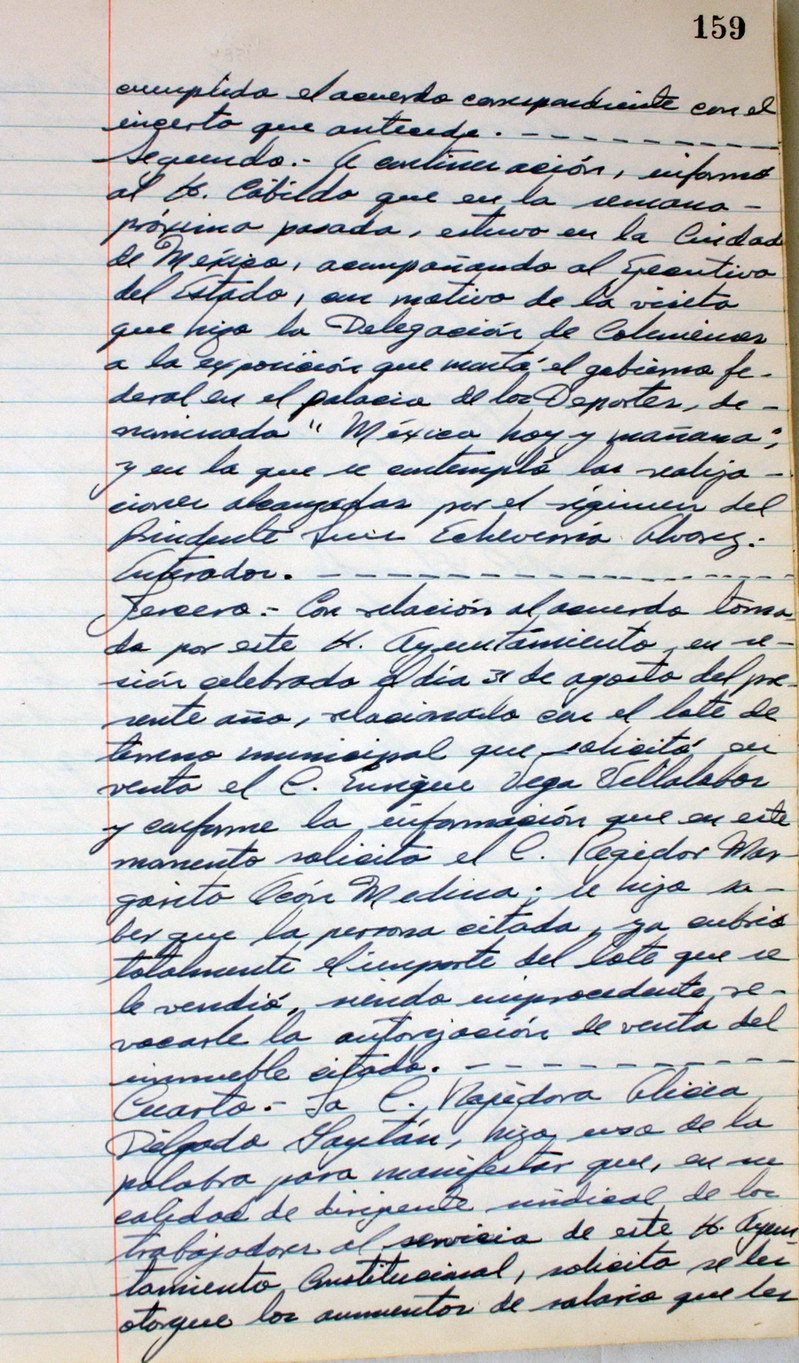 159
cumplido el acuerdo correspondiente con el
incerto que antecede. - - - - - - - - - -
Segundo.- A continuación, informó
al H. Cabildo que en la semana -
próxima pasada, estuvo en la Ciudad
de México, acompañando al Ejecutivo
del Estado, con motivo de la visita
que hizo la Delegación de Colimenses
a la exposición que montó el gobierno fe-
deral en el palacio de los Deportes, de-
nominada "México hoy y mañana",
y en la que se contempló las realiza-
ciones alcanzadas por el régimen del
Presidente Luis Echeverría Alvarez.-
Enterados. - - - - - - - - - - - - - -
Tercero.- Con relación al acuerdo toma-
do por este H. Ayuntamiento en se-
sión celebrada el día 31 de agosto del pre-
sente año, relacionado con el lote de
terreno municipal que solicitó en
venta el C. Enrique Vega Villalobos
y conforme la información que en este
momento solicita el C. Regidor Mar-
garito Medina; se hizo sa-
ber que la persona citada, ya cubrió
totalmente el importe del lote que se
le vendió, siendo improcedente re-
vocarle la autorización de venta del
inmueble citado. - - - - - - - - - -
Cuarto.- La C. Regidora Alicia
Delgado Gaytán, hizo uso de la
palabra para manifestar que, en su
calidad de dirigente sindical de los
trabajadores al servicio de este H. Ayun-
tamiento Constitucional, solicita se les
otorgue los aumentos de salario que les